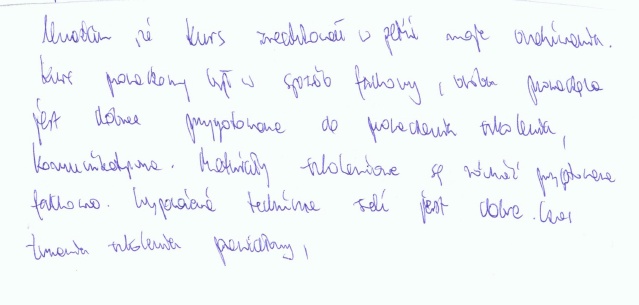 Uważam, że kurs zrealizował w pełni moje oczekiwania.
Kurs prowadzony był w sposób fachowy, osoba prowadząca
jest dobrze przygotowana do prowadzenia szkolenia,
komunikatywna. Materiały szkoleniowe są również przygotowane
fachowo. Wyposażenie techniczne sali jest dobre. Czas
trwania szkolenia prawidłowy,